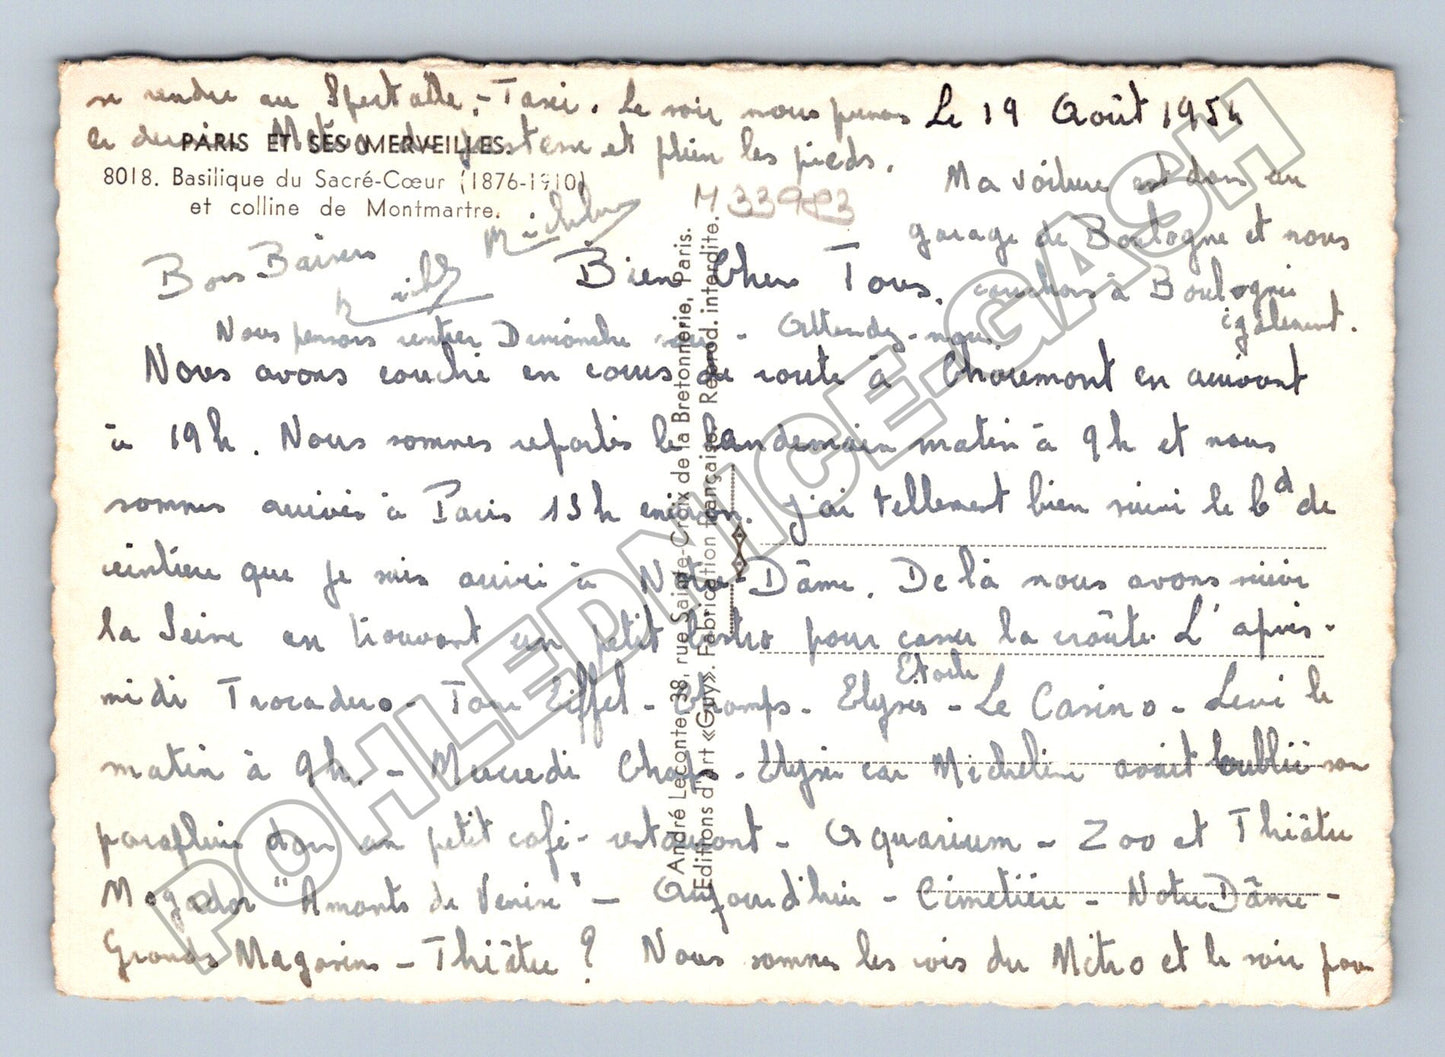 Le 19 Août 1954
Bien Chers Tous.
Nous avons couché en cours de route à Chaumont en arrivant
à 19h. Nous sommes repartis le landemain matin à 9h et nous
sommes arrivés à Paris 13h environ. j'ai tellement bien suivi le bd de
ceinture que je suis arrivé à Notre-Dâme. De là nous avons suivi
la Seine en trouvant un petit bistro pour casser la croûte. L'après-
midi Trocadero - Tour Eiffel - Champs-Elysées - Etoile - Le Casino - Levé le
matin à 9h. - Mercredi Champs-Elysées car Micheline avait oublié son
parapluie dans un petit café-restaurant - Aquarium - Zoo et Théâtre
Mogador "Amants de Venise" - Aujourd'hui - Cimetière - Notre Dâme -
Grands Magasins - Théâtre ? Nous sommes les rois du Métro et le soir pour
se rendre au Spectacle, - Taxi. Le soir nous prenons
le dernier Métro et plein les pieds.
Ma voiture est dans un
garage de Boulogne et nous
couchons à Boulogne
également.
Nous pensons rentrer Dimanche soir - Attendez-nous.
Bons Baisers
Micheline
PARIS ET SES MERVEILLES.
8018. Basilique du Sacré-Cœur (1876-1910)
et colline de Montmartre.
M 33983
André Leconte, 38, rue Sainte-Croix de la Bretonnerie, Paris.
Editions d'art «Guy». Fabrication française. Reprod. interdite.
POHLEDNICE-GASH